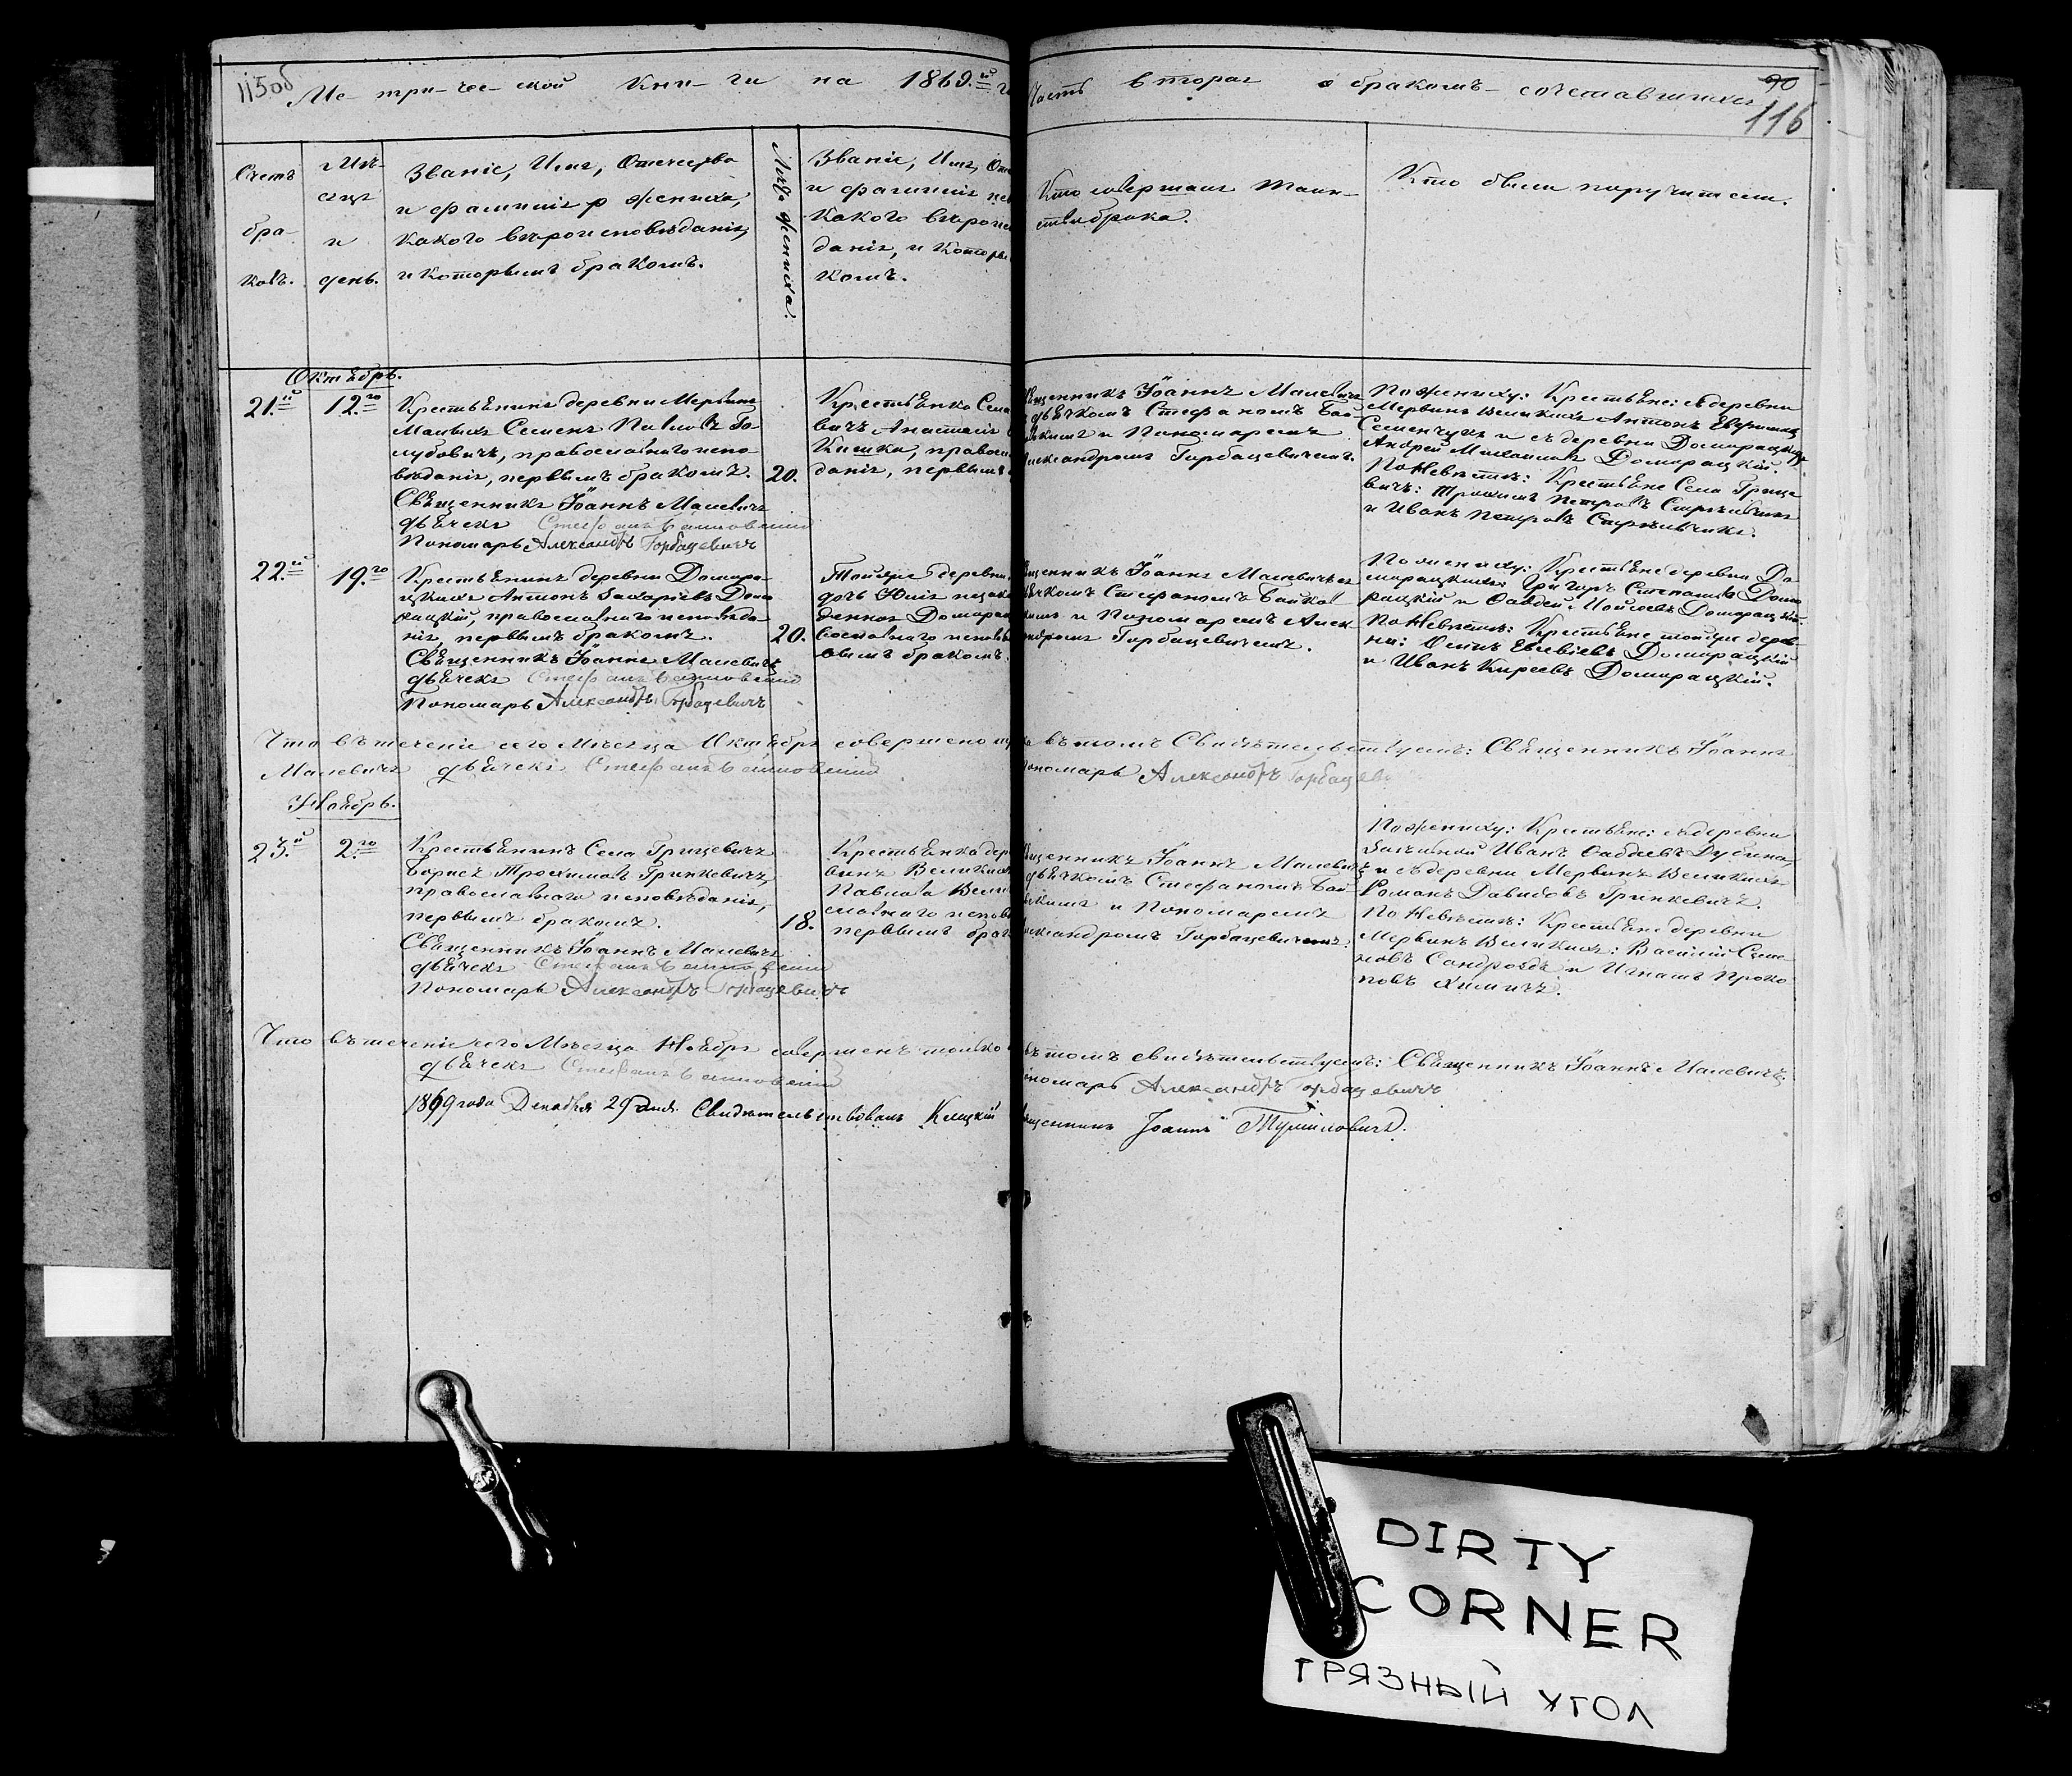 115об
Ме-три-чес-кой Кни-ги на 1869.й
Часть вторая о бракомъ-сочетавшихся
90
116
Счетъ
бра-
ковъ.
Мѣ-
сяцъ
и
день.
Званіе, Имя, Отечество
и фамилія жениха,
какого вѣроисповѣданія,
и которымъ бракомъ.
Лѣта жениха.
Званіе, Имя, От
и фамилія не
какого вѣроис
данія, и которы
комъ.
Кто совершалъ Таин-
ство брака.
Кто были поручители.
Октябрь.
21.й
12.го
Крестьянинъ деревни Мервинъ
Малыхъ Семенъ Павловъ Го-
лубовичъ, православнаго испо-
вѣданія, первымъ бракомъ.
20.
Священникъ Іоаннъ Малевичъ
дьячекъ Стефанъ
Пономарь Александръ Горбацевичъ
Крестьянка Села
вичъ Анастасія
Кишка, правосл
данія, первымъ
щенникъ Іоаннъ Малевичъ
дьячкомъ Стефаномъ Бай-
и Пономаремъ
лександромъ Горбацевичемъ.
По жениху: Крестьяне: съ деревни
Мервинъ Великихъ Антонъ
Семенчукъ и съ деревни Домарацкихъ
Андрей Домарацкій.
По Невѣстѣ: Крестьяне Села Грице-
вичъ: Трохимъ Петровъ
и Иванъ Петровъ
22.й
19.го
Крестьянинъ деревни Домара-
цкихъ Антонъ Захаріевъ Дома-
рацкій, православнаго исповѣда-
нія, первымъ бракомъ.
20.
Священникъ Іоаннъ Малевичъ
дьячекъ Стефанъ
Пономарь Александръ Горбацевичъ
Той же деревни
дочь Юлія незако
денная Домарац
вославнаго исповѣ
вымъ бракомъ.
щенникъ Іоаннъ Малевичъ съ
дьячкомъ Стефаномъ Байков
и Пономаремъ Алек
андромъ Горбацевичемъ.
По жениху: Крестьяне деревни До-
марацкихъ: Григорій Степановъ Дома-
рацкій и Домарацкій.
По Невѣстѣ: Крестьяне той же дерев-
ни: Осипъ Евсѣвіевъ Домарацкій
и Иванъ Киреевъ Домарацкій.
Что въ теченіе сего Мѣсяца Октября совершено въ томъ Свидѣтельствуемъ: Священникъ Іоаннъ
Малевичъ дьячекъ Стефанъ
ономарь Александръ Горбацев
Ноябрь.
23.й
2.го
Крестьянинъ Села Грицевичъ
Борисъ Трохимовъ Гринкевичъ,
православнаго исповѣданія,
первымъ бракомъ.
18.
Священникъ Іоаннъ Малевичъ
дьячекъ Стефанъ
Пономарь Александръ Горбацевичъ
Крестьянка дер
винъ Великихъ
Павлова Вели
славнаго исповѣ
первымъ брак
щенникъ Іоаннъ Малевичъ
дьячкомъ Стефаномъ Бай-
и Пономаремъ
лександромъ Горбацевичемъ.
По жениху: Крестьяне: съ деревни
Иванъ Дубина
и съ деревни Мервинъ Великихъ
Романъ Давидовъ Гринкевичъ.
По Невѣстѣ: Крестьяне деревни
Мервинъ Великихъ: Василій Семе-
новъ и Игнатъ Проко-
повъ Химичъ.
Что въ теченіе сего Мѣсяца Ноября совершенъ только въ томъ свидѣтельствуемъ: Священникъ Іоаннъ Малевичъ
дьячекъ Стефанъ
ономарь Александръ Горбацевичъ
1869 года Декабря 29 дня. Свидѣтельствовалъ Клецкій
щенникъ Іоаннъ Тумиловичъ.
DIRTY
CORNER
ГРЯЗНЫЙ УГОЛ